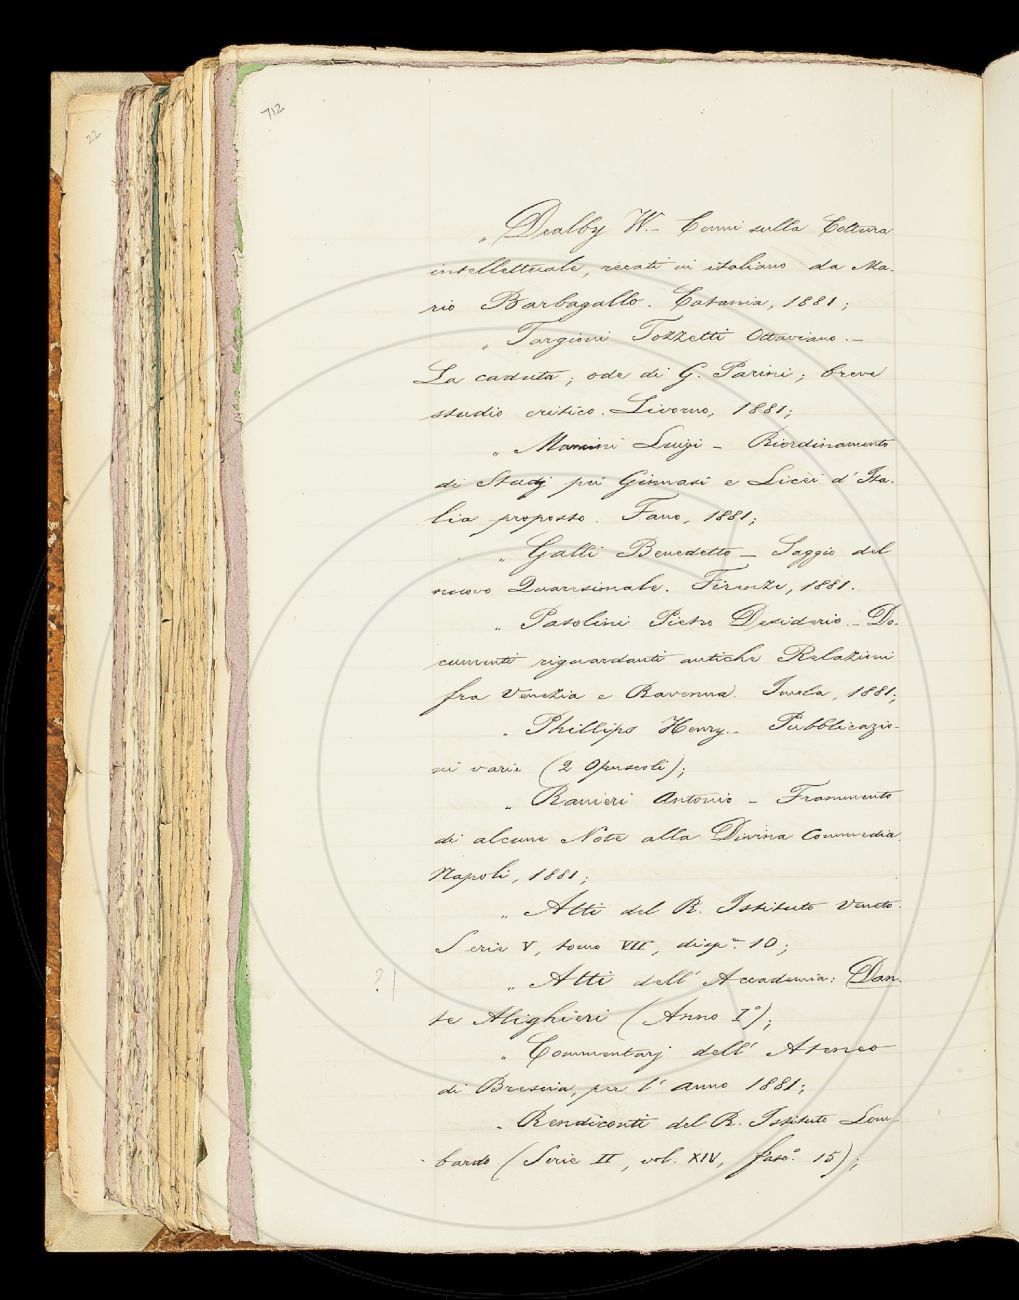 712
22
„ Dealby W. – Cenni sulla Coltura
intellettuale, recati in italiano da Ma-
rio Barbagallo. Catania, 1881;
„ Targioni Tozzetti Ottaviano. –
La caduta; ode di G. Parini; breve
studio critico. Livorno, 1881;
„ Mancini Luigi – Riordinamento
di Studj pei Ginnasi e Licei d'Ita-
lia proposto. Fano, 1881;
„ Galli Benedetto – Saggio del
nuovo Quaresimale. Firenze, 1881.
„ Pasolini Pietro Desiderio. – Do-
cumenti riguardanti antiche Relazioni
fra Venezia e Ravenna. Imola, 1881;
„ Phillips Henry. – Pubblicazio-
ni varie (2 Opuscoli);
„ Ranieri Antonio – Frammento
di alcune Note alla Divina Commedia.
Napoli, 1881;
„ Atti del R. Istituto Veneto.
Serie V, tomo VII, disp.ª 10;
?| „ Atti dell' Accademia: Dan-
te Alighieri (Anno I°);
„ Commentarj dell' Ateneo
di Brescia, per l' anno 1881;
„ Rendiconti del R. Istituto Lom-
bardo (Serie II, vol. XIV, fasc.° 15);